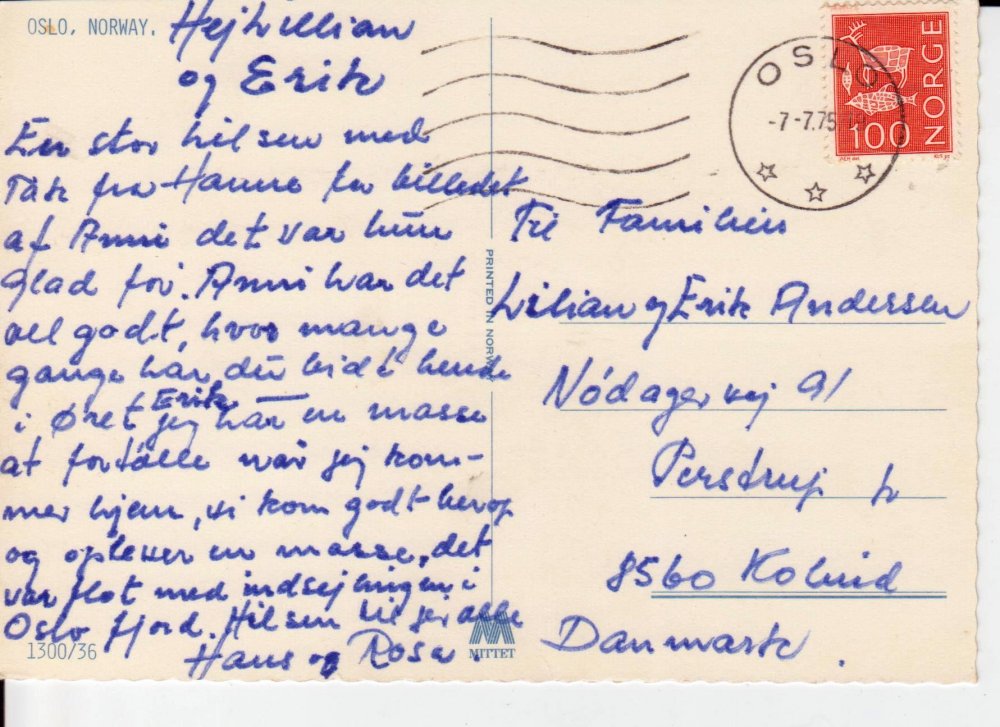 OSLO, NORWAY.
Hej Lillian
og Erik
En stor hilsen med
Tak fra Hanne for billedet
af Anni det var hun
glad for. Anni har det
vel godt, hvor mange
gange har du bidt hende
i Øret Erik jeg har en masse
at fortælle når jeg kom-
mer hjem, vi kom godt herop
og oplever en masse, det
var flot med indsejlingen i
Oslo fjord. Hilsen til jer alle
Hans og Rosa.
1300/36
PRINTED IN NORWAY
MITTET
OSLO
-7-7.75
NORGE
100
Til Familien
Lilian og Erik Andersen
Nødagervej 91
Perstrup pr
8560 Kolind
Danmark.